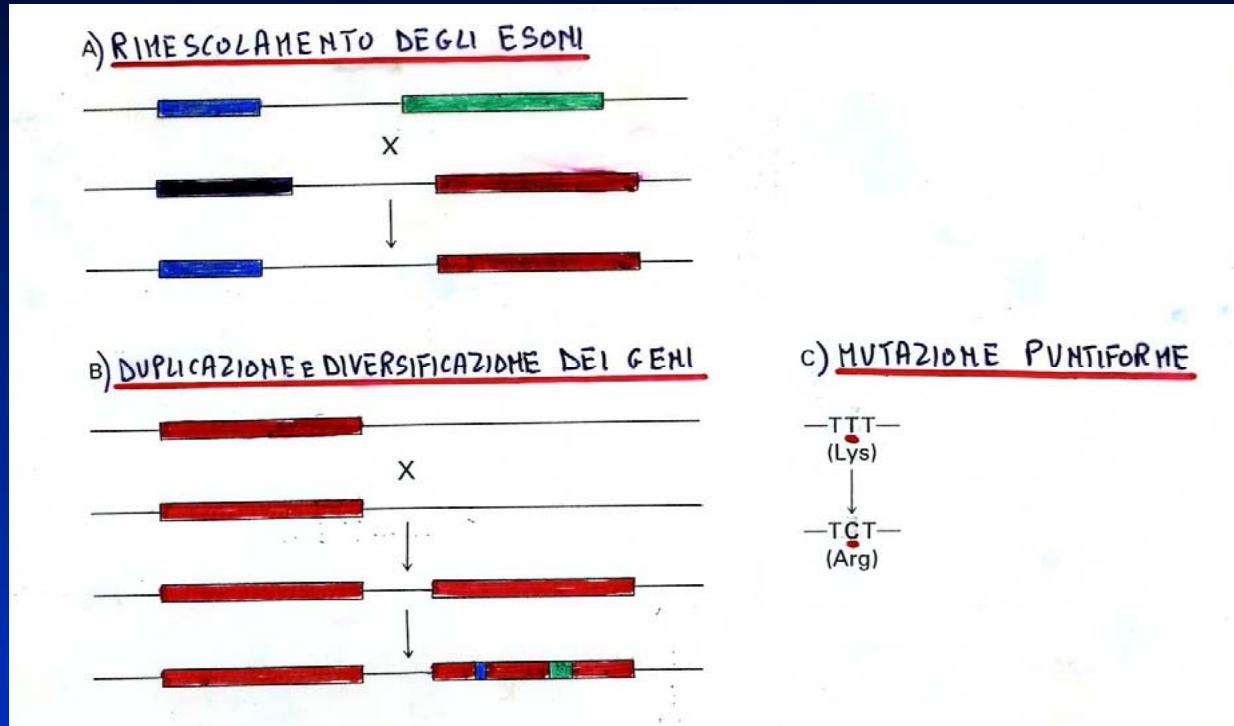 A) RIMESCOLAMENTO DEGLI ESONI
X
B) DUPLICAZIONE E DIVERSIFICAZIONE DEI GENI
X
C) MUTAZIONE PUNTIFORME
—TTT—
(Lys)
—TCT—
(Arg)